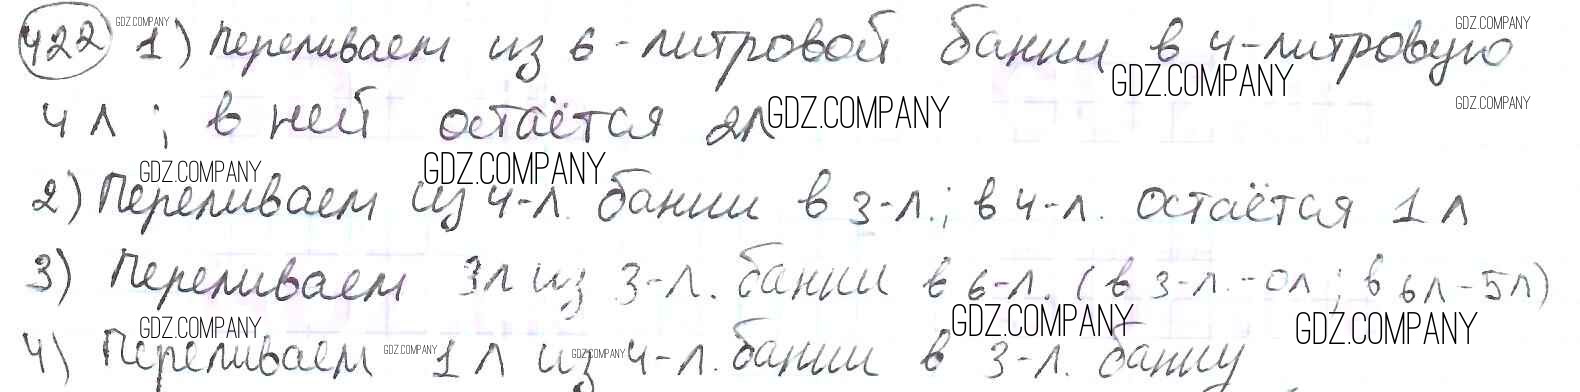 422 1) Переливаем из 6-литровой банки в 4-литровую
4 л; в ней остаётся 2л
2) Переливаем из 4-л. банки в 3-л.; в 4-л. остаётся 1 л
3) Переливаем 3л из 3-л. банки в 6-л. (в 3-л.-0л; в 6л-5л)
4) Переливаем 1 л из 4-л. банки в 3-л. банку
GDZ.COMPANY
GDZ.COMPANY
GDZ.COMPANY
GDZ.COMPANY
GDZ.COMPANY
GDZ.COMPANY
GDZ.COMPANY
GDZ.COMPANY
GDZ.COMPANY
GDZ.COMPANY
GDZ.COMPANY
GDZ.COMPANY